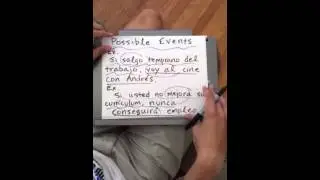 Possible Events
Ex.
Si salgo temprano del
trabajo, voy al cine
con Andrés.
Ex
Si usted no mejora su
curriculum, nunca
conseguirá empleo